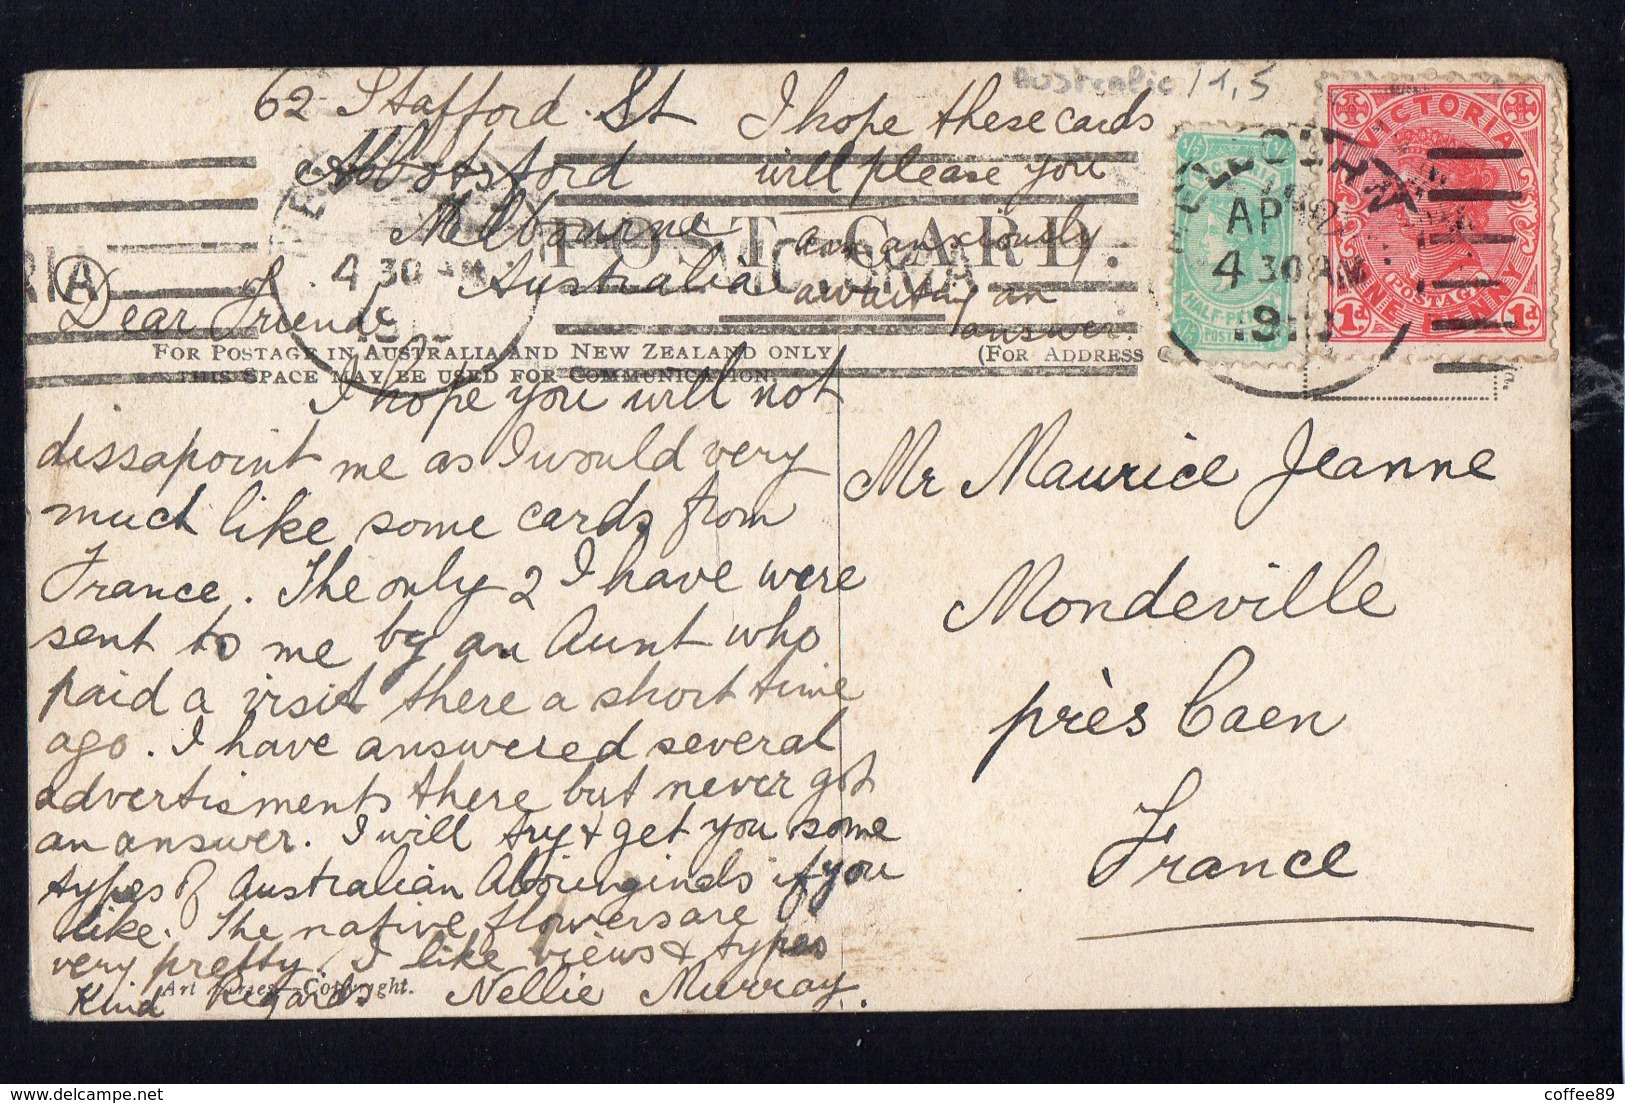 62 Stafford St
Abbotsford
Melbourne
Australia
Australie 1,5
I hope these cards
will please you
am anxiously
awaiting an
answer.
POST CARD.
FOR POSTAGE IN AUSTRALIA AND NEW ZEALAND ONLY
THIS SPACE MAY BE USED FOR COMMUNICATION.
(FOR ADDRESS
VICTORIA
HALF-PENNY
½ POSTAGE
VICTORIA
POSTAGE
1d ONE PENNY 1d
AP 12
4 30 AM
191
4 30 AM
Dear Friends
I hope you will not
dissapoint me as I would very
much like some cards from
France. The only 2 I have were
sent to me by an Aunt who
paid a visit there a short time
ago. I have answered several
advertisments there but never got
an answer. I will try & get you some
types of Australian Aboinginels if you
like. The native flowers are
very pretty. I like views & types
Kind Regards Nellie Murray.
Art Copyright.
Mr Maurice Jeanne
Mondeville
près Caen
France
coffee89